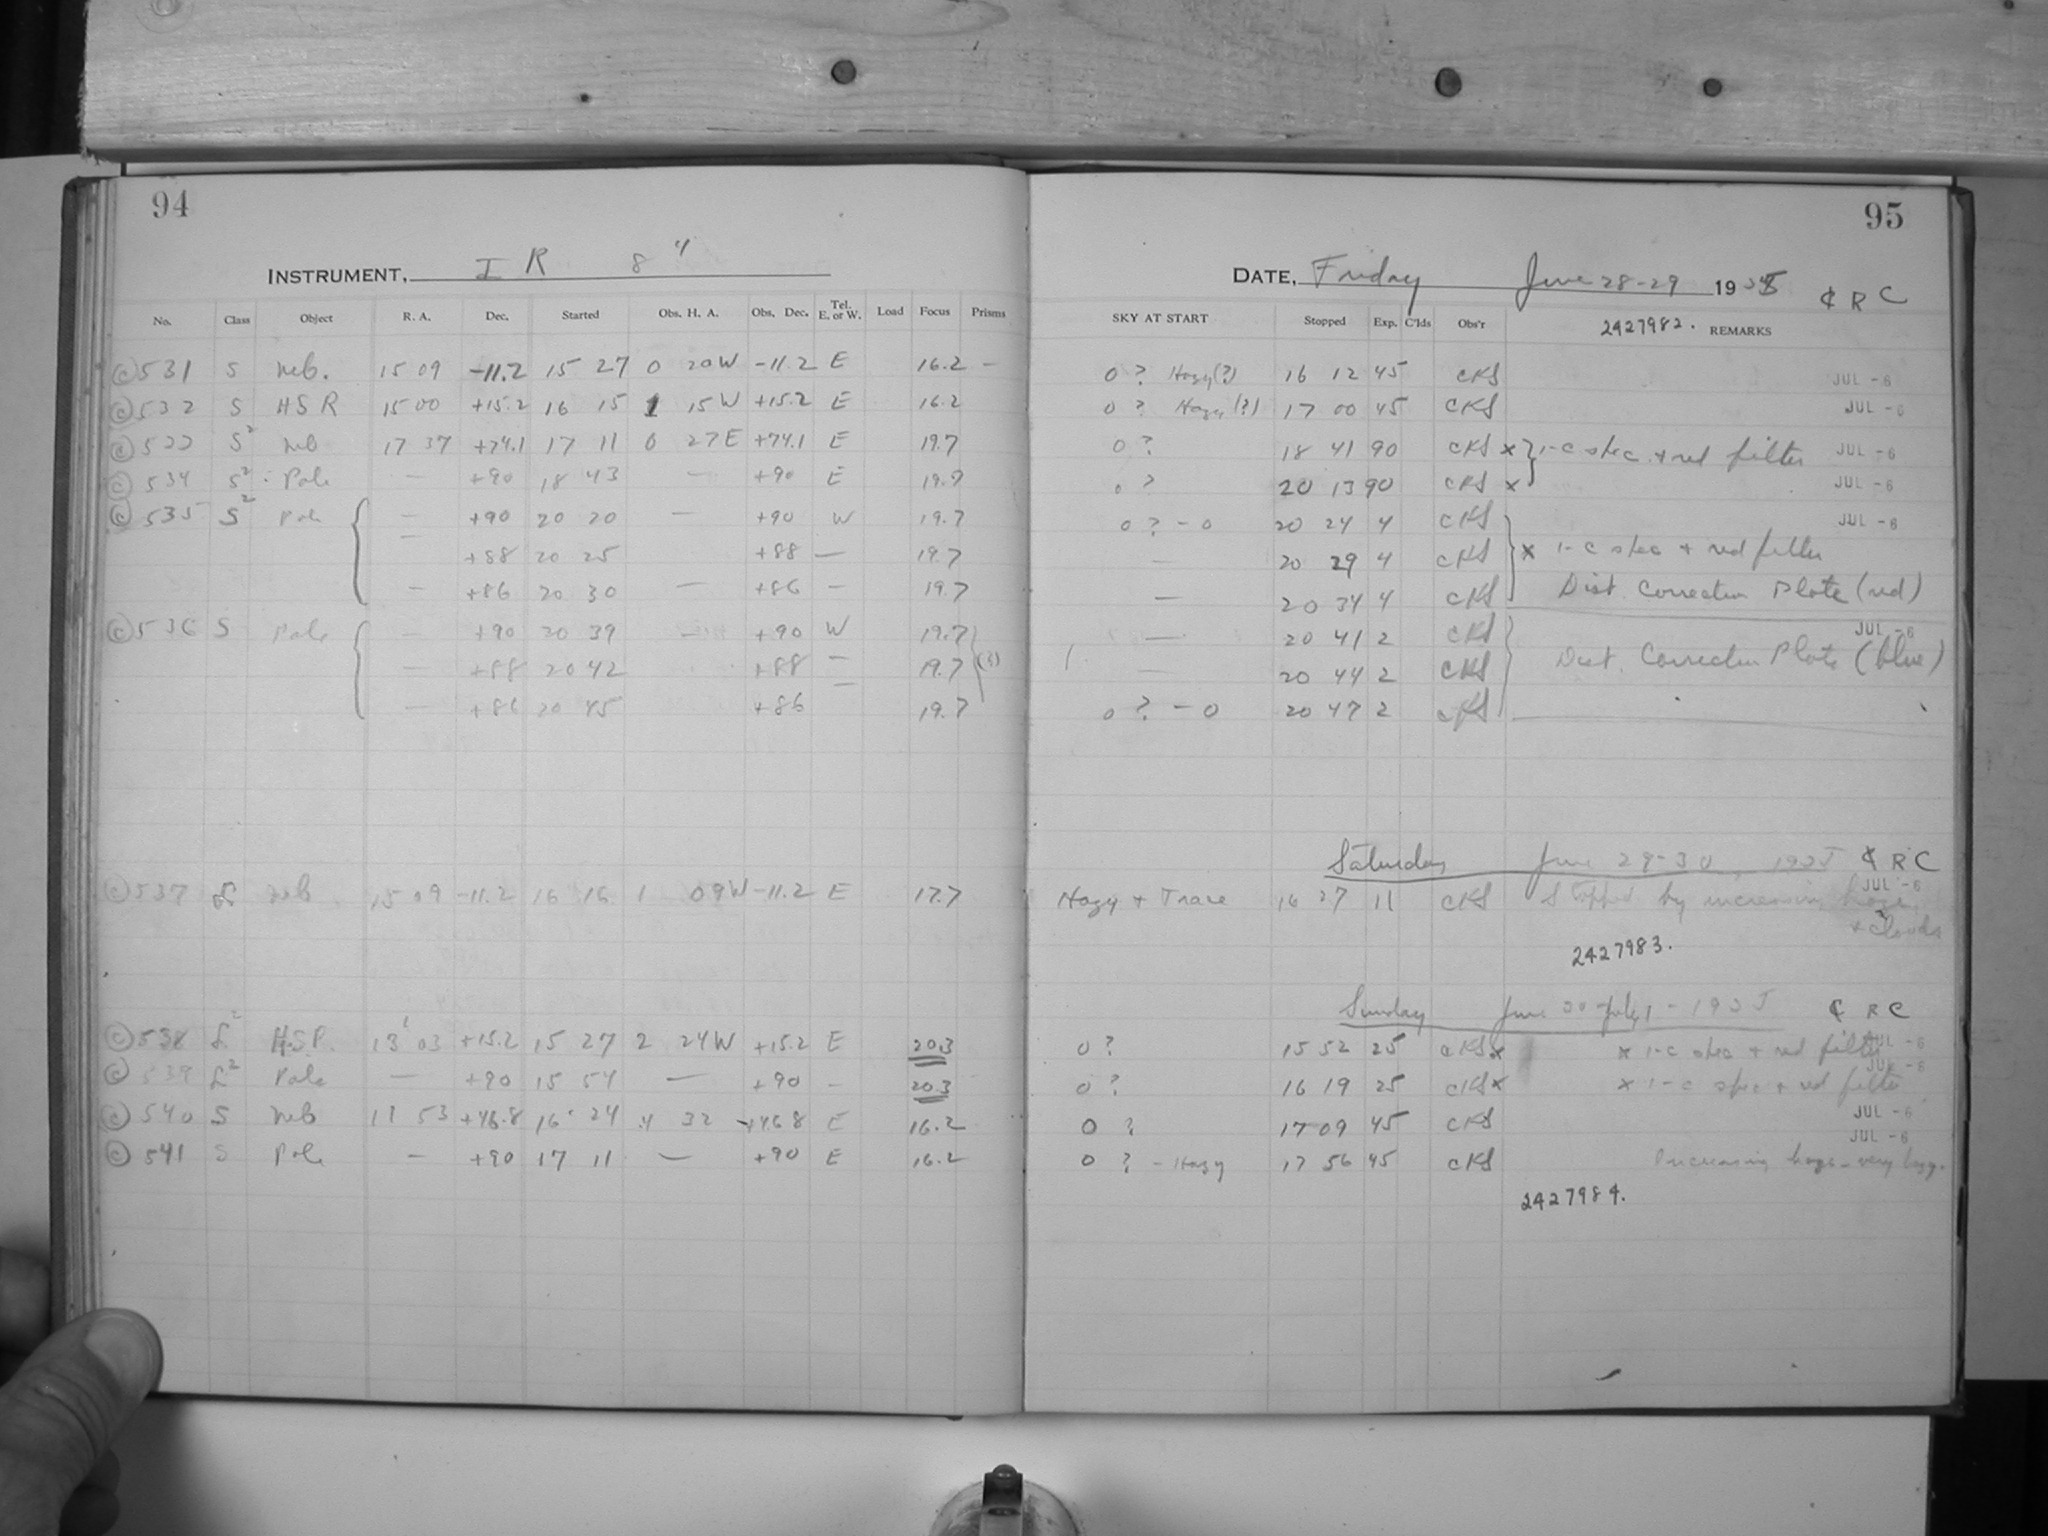 94
INSTRUMENT, I R 8"
No. Class Object R. A. Dec. Started Obs. H. A. Obs. Dec. Tel. E. or W. Load Focus Prisms
C 531 S neb. 15 09 -11.2 15 27 0 20W -11.2 E 16.2 -
C 532 S HSR 15 00 +15.2 16 15 1 15W +15.2 E 16.2
C 533 S2 neb 17 37 +74.1 17 11 0 27E +74.1 E 19.7
C 534 S2 Pole — +90 18 43 — +90 E 19.7
C 535 S2 Pole — +90 20 20 — +90 W 19.7
+88 20 25 +88 — 19.7
— +86 20 30 — +86 — 19.7
C 536 S Pole — +90 20 39 — +90 W 19.7
— +88 20 42 +88 — 19.7 (3)
— +86 20 45 +86 19.7
C 537 S neb 15 09 -11.2 16 16 1 09W -11.2 E 17.7
C 538 S2 HSP 13 03 +15.2 15 27 2 24W +15.2 E 20.3
C 539 S2 Pole — +90 15 54 — +90 — 20.3
C 540 S neb 11 53 +46.8 16 24 4 32 +46.8 E 16.2
C 541 S Pole — +90 17 11 — +90 E 16.2
95
DATE, Friday June 28-29 1935 ¢ R C
SKY AT START Stopped Exp. C'lds Obs'r 2427982. REMARKS
0 ? Hazy(?) 16 12 45 CKS JUL -6
0 ? Hazy(?) 17 00 45 CKS JUL -6
0 ? 18 41 90 CKS x } 1-C spec + red filter JUL -6
0 ? 20 13 90 CKS x JUL -6
0 ? - 0 20 24 4 CKS JUL -6
— 20 29 4 CKS x 1-C spec + red filter
— 20 34 4 CKS Dist. Correction Plate (red)
— 20 41 2 CKS JUL -6
— 20 44 2 CKS Dist. Correction Plate (blue)
0 ? - 0 20 47 2 CKS
Saturday June 29-30, 1935 ¢ R C
JUL -6
Hazy + Trace 16 27 11 CKS Stopped by increasing haze
+ clouds
2427983.
Sunday June 30-July 1 - 1935 ¢ R C
0 ? 15 52 25 CKS x x 1-C spec + red filter JUL -6
0 ? 16 19 25 CKS x x 1-C spec + red filter JUL -6
0 ? 17 09 45 CKS JUL -6
0 ? - Hazy 17 56 45 CKS Increasing haze - very hazy. JUL -6
2427984.